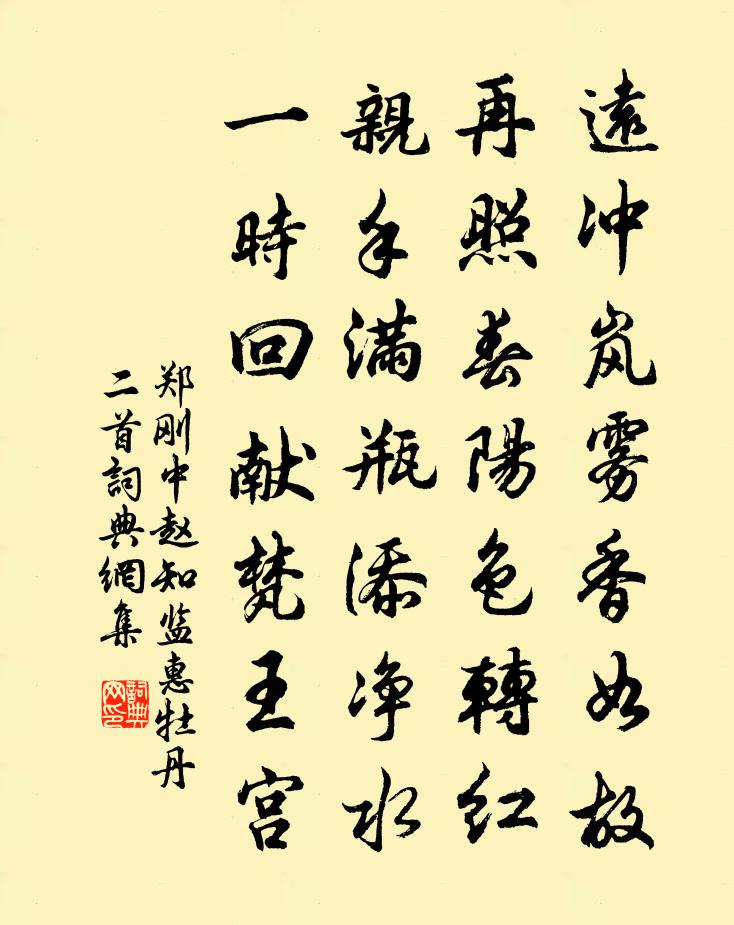 遠冲岚雾香如故
再照春陽色轉紅
親手满瓶添净水
一時回献梵王宫
郑刚中赵知监惠牡丹
二首詞典網集
詞典网印